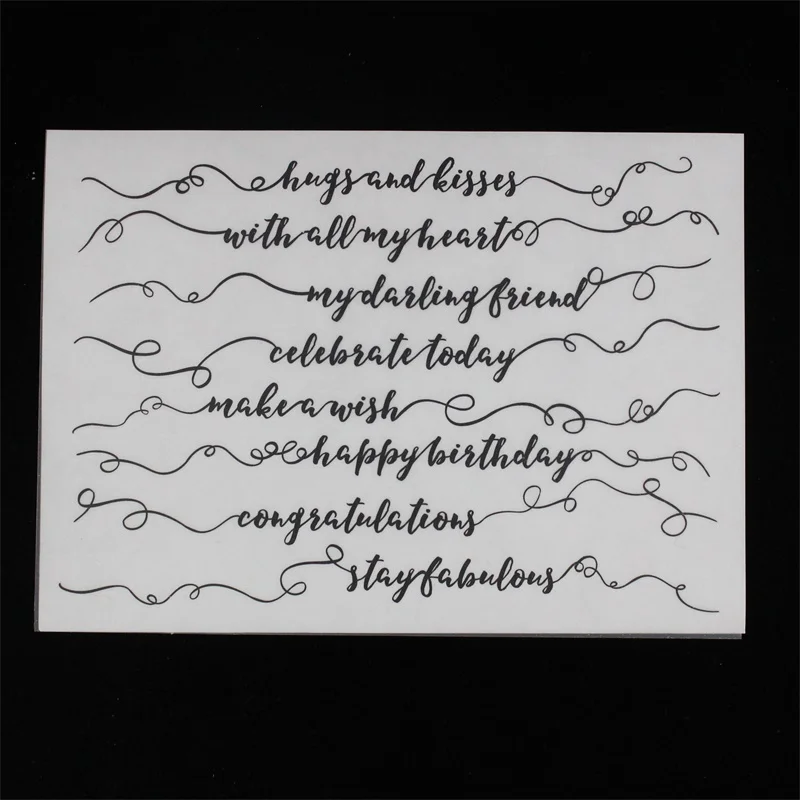 hugs and kisses
with all my heart
my darling friend
celebrate today
make a wish
happy birthday
congratulations
stay fabulous